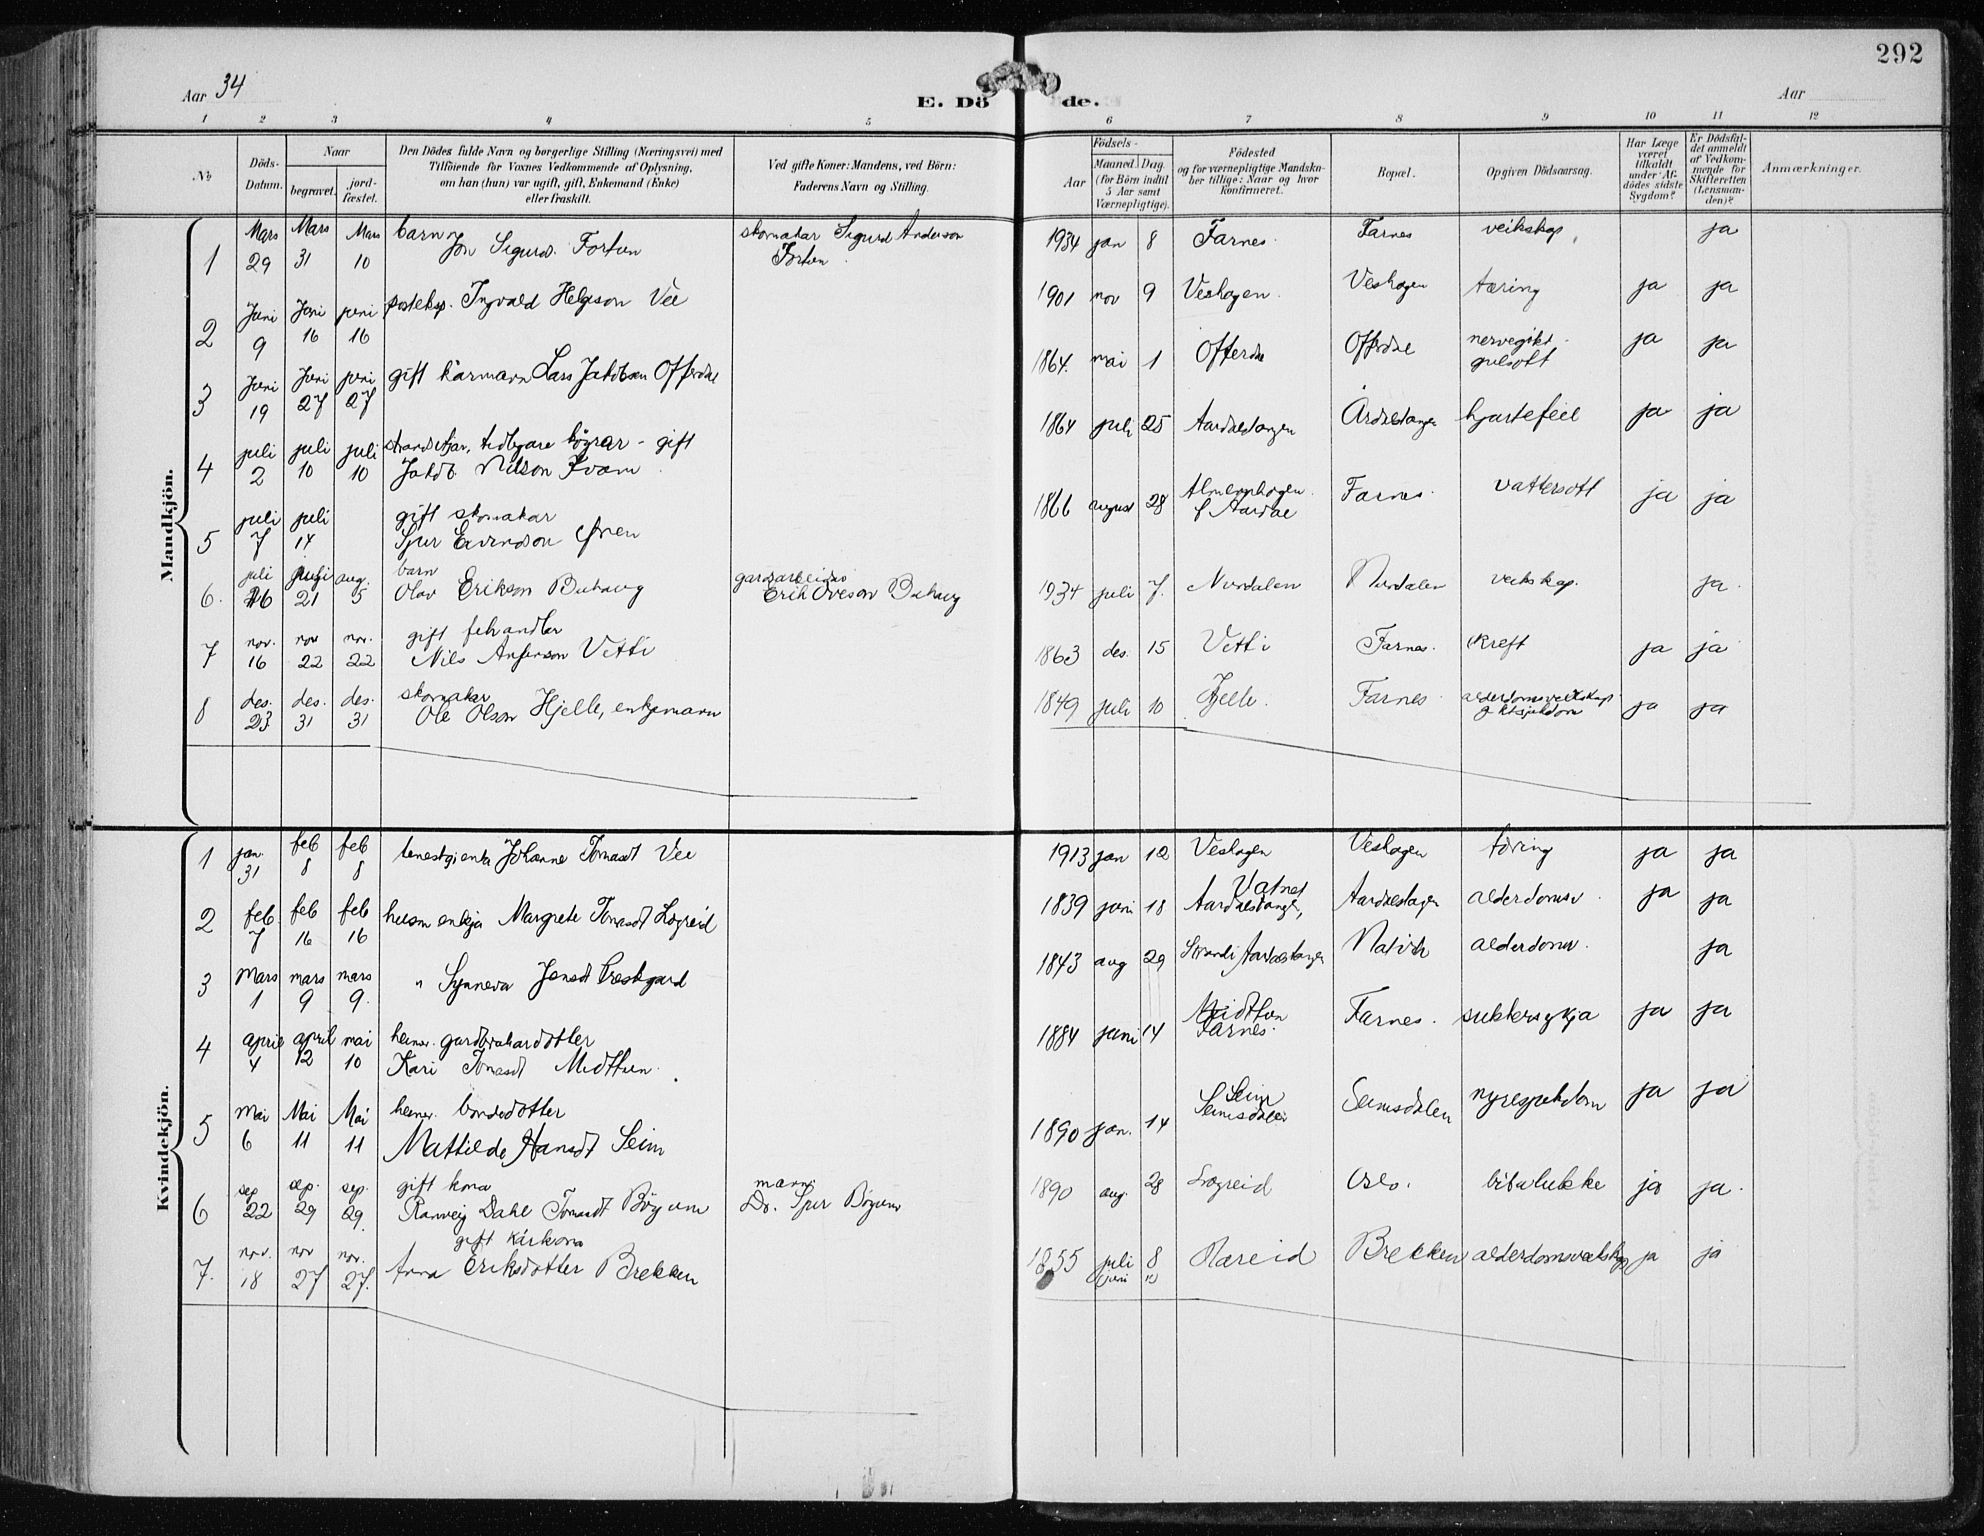 292
Aar 34
E. Dö de.
Aar
1 2 3 4 5 6 7 8 9 10 11 12
No
Döds-Datum.
Naar
begravet.
jord-fæstet.
Den Dödes fulde Navn og borgerlige Stilling (Næringsvei) med
Tilföiende for Voxnes Vedkommende af Oplysning,
om han (hun) var ugift, gift, Enkemand (Enke)
eller fraskilt.
Ved gifte Koner: Mandens, ved Börn:
Faderens Navn og Stilling.
Födsels-
Aar
Maaned. Dag.
(for Börn indtil
5 Aar samt
Værnepligtige).
Födested
og for værnepligtige Mandskaber tillige: Naar og hvor
konfirmeret.
Bopæl.
Opgiven Dödsaarsag.
Har Læge
været
tilkaldt
under Af-
dödes sidste
Sygdom?
Er Dödsfal-
det anmeldt
af Vedkom-
mende for
Skifteretten
(Lensman-
den)?
Anmærkninger.
Mandkjön.
1 Mars 29 Mars 31 Mars 10 barn Jon Sigurd Fortun skomakar Sigurd Anderson Fortun 1934 jan 8 Farnes Farnes veikskap ja
2 Juni 9 Juni 16 juni 16 posteksp. Ingvald Helgeson Vee 1901 nov 9 Veehagen Veehagen tæring ja ja
3 Juni 19 Juni 27 juni 27 gift kårmann Lars Jakobsen Offerdal 1864 mai 1 Offerdal Offerdal nervegikt gulsott ja ja
4 juli 2 juli 10 juli 10 strandsitjar, tidlegare - gift Jakob Nilson Kvam 1864 juli 25 Aardalstangen Årdalstangen hjartefeil ja ja
5 juli 7 juli 14 gift skomakar Sjur Eivindson Øren 1866 august 28 Almenhagen f Aardal Farnes vattersott ja ja
6. juli 16 juli 21 aug. 5 barn Olav Erikson Buhaug gardsarbeidar Erik Oveson Buhaug 1934 juli 7. Nundalen Nundalen veikskap ja
7 nov. 16 nov 22 nov. 22 gift fehandlar Nils Anfinnson Vetti 1863 des. 15 Vetti Farnes kreft ja ja
8 des. 23 des. 31 des. 31 skomakar Ole Olson Hjelle, enkjemann 1849 juli 10 Hjelle Farnes alderdomsveikskap ja ja
Kvindekjön.
1 jan. 31 feb 8 feb 8 tenestgjenta Johanne Tomasdt Vee 1913 jan 12 Veehagen Veehagen tæring ja ja
2 feb 7 feb 16 feb 16 husm enkja Margrete Tomasdt Lægreid 1839 juni 18 Vatnet Aardalstangen, Aardalstangen alderdomsv ja ja
3 Mars 1 mars 9 mars 9. " Synneva Jensdt Prestegard 1843 aug 29 Strandi Aardalstangen Natvik alderdomsv. ja
4 april 4 april 12 mai 10 heimev. gardbrukardotter Kari Tomasdt Midttun 1884 juni 14 Midttun Farnes Farnes sukkersykja ja ja
5 Mai 6 Mai 11 Mai 11 heimev. bondedotter Mathilde Hansdt Seim 1890 jan. 14 Seim Seimsdalen Seimsdalen nyresjukdom ja ja
6 sep 22 sep. 29 sep. 29. gift kona Ranveig Dahl Tomasdt Böyum mann: Dr. Sjur Böyum 1890 aug. 28 Lægreid Oslo. bilulukke ja ja
7. nov. 18 nov 27 nov. 27. gift kårkona Anna Eriksdotter Brekken 1855 juli 8 (juni Nareid Brekken alderdomsveikskap ja ja